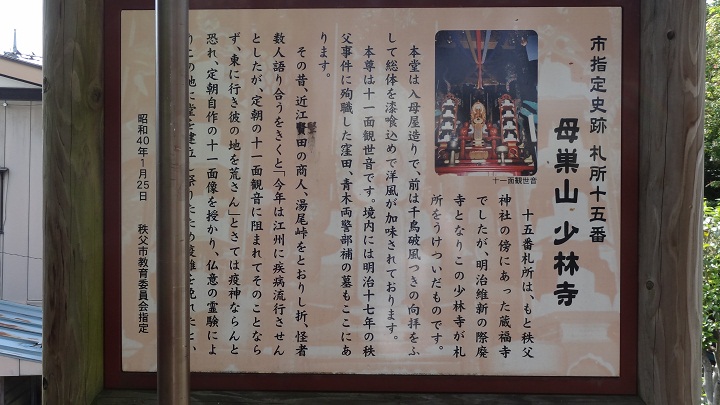 市指定史跡 札所十五番
母巣山 少林寺
十五番札所は、もと秩父
神社の傍にあった蔵福寺
でしたが、明治維新の際廃
寺となりこの少林寺が札
所をうけついだものです。
十一面観世音
本堂は入母屋造りで、前は千鳥破風つきの向拝をふ
して総体を漆喰込めで洋風が加味されております。
本尊は十一面観世音です。境内には明治十七年の秩
父事件に殉職した窪田、青木両警部補の墓もここにあ
ります。
その昔、近江 田の商人、湯尾峠をとおりし折、怪者
数人語り合うをきくと「今年は江州に疾病流行させん
としたが、定朝の十一面観音に阻まれてそのことなら
ず、東に行き彼の地を荒さん」とさては疫神ならんと
恐れ、定朝自作の十一面像を授かり、仏意の霊験によ
昭和40年1月25日 秩父市教育委員会指定